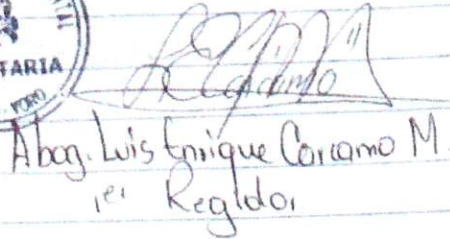 TARIA
YORO
Abog. Luis Enrique Carcamo M.
1er Regidor